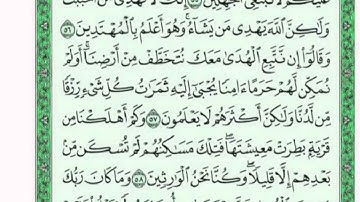 عَلَيْكُمْ لَا نَبْتَغِى ٱلْجَٰهِلِينَ ٥٥ إِنَّكَ لَا تَهْدِى مَنْ أَحْبَبْتَ
وَلَٰكِنَّ ٱللَّهَ يَهْدِى مَن يَشَآءُ ۚ وَهُوَ أَعْلَمُ بِٱلْمُهْتَدِينَ ٥٦
وَقَالُوٓا۟ إِن نَّتَّبِعِ ٱلْهُدَىٰ مَعَكَ نُتَخَطَّفْ مِنْ أَرْضِنَآ ۚ أَوَلَمْ
نُمَكِّن لَّهُمْ حَرَمًا ءَامِنًا يُجْبَىٰٓ إِلَيْهِ ثَمَرَٰتُ كُلِّ شَىْءٍ رِّزْقًا
مِّن لَّدُنَّا وَلَٰكِنَّ أَكْثَرَهُمْ لَا يَعْلَمُونَ ٥٧ وَكَمْ أَهْلَكْنَا مِن
قَرْيَةٍۭ بَطِرَتْ مَعِيشَتَهَا ۖ فَتِلْكَ مَسَٰكِنُهُمْ لَمْ تُسْكَن مِّنۢ
بَعْدِهِمْ إِلَّا قَلِيلًا ۖ وَكُنَّا نَحْنُ ٱلْوَٰرِثِينَ ٥٨ وَمَا كَانَ رَبُّكَ